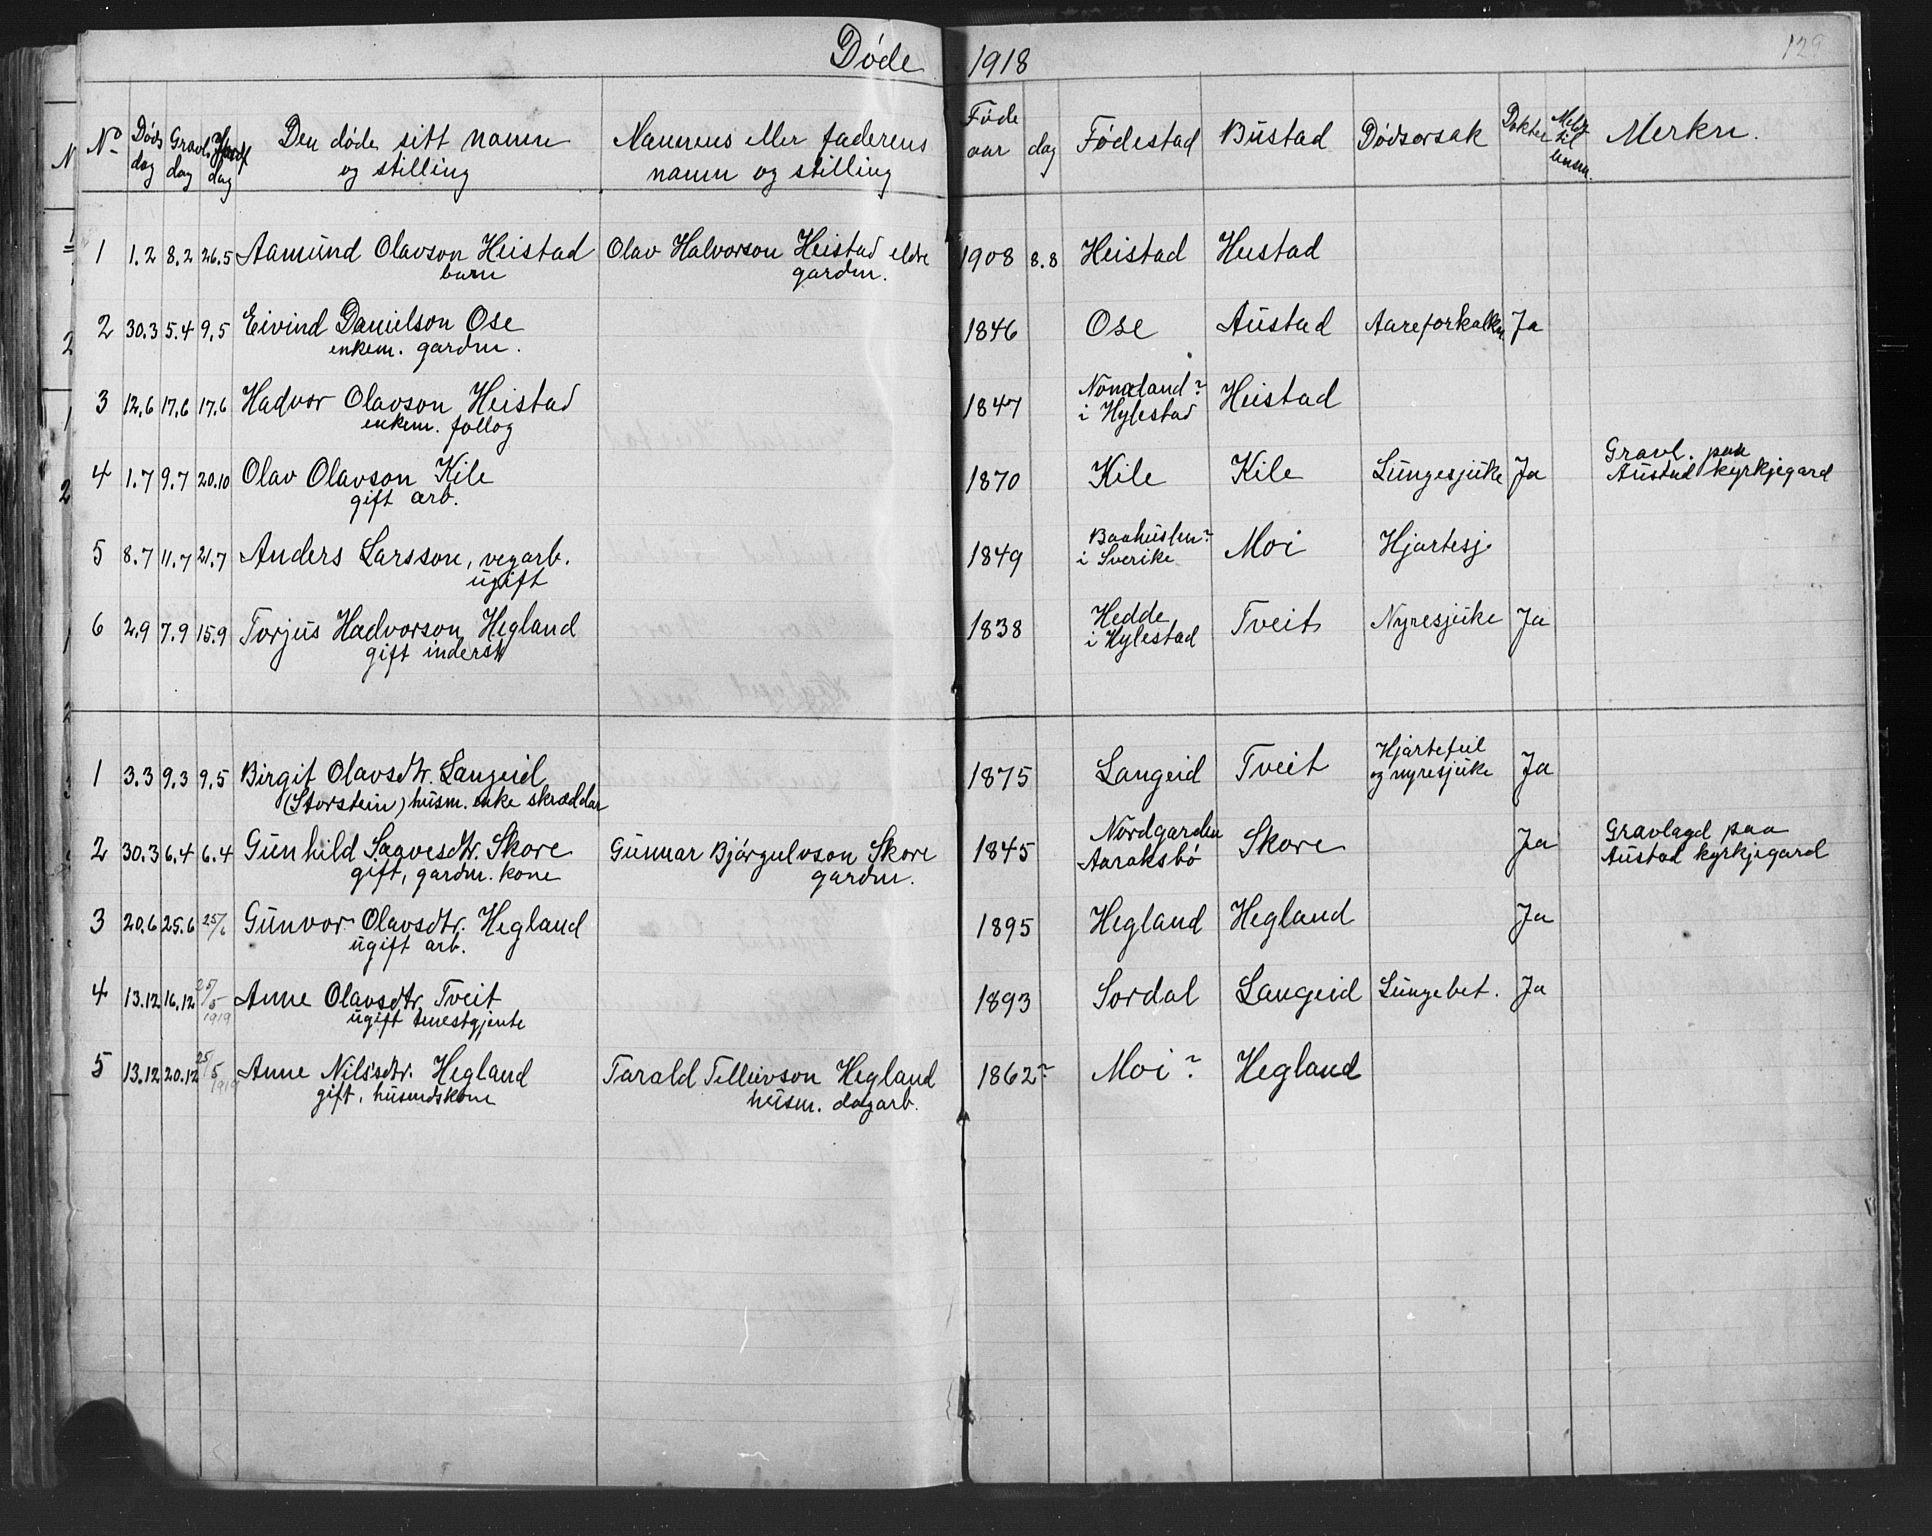 Døde 1918
129
No Døds dag Gravl. dag Jordf dag Den døde sitt namn og stilling Mannens eller faderens namn og stilling Føde aar dag Fødestad Bustad Dødsorsak Dokter Meldt til Merkn.
1 1.2 8.2 26.5 Aamund Olavson Heistad Olav Halvorson Heistad eldre 1908 8.8 Heistad Heistad
barn gardm.
2 30.3 5.4 9.5 Eivind Danielson Ose 1846 Ose Austad Aareforkalkn. Ja
enkem. gardm.
3 12.6 17.6 17.6 Hadvor Olavson Heistad 1847 Nomeland? i Hylestad Heistad
enkem. follog
4 1.7 9.7 20.10 Olav Olavson Kile 1870 Kile Kile Lungesjuke Ja Gravl. paa Austad kyrkjegard
gift arb.
5 8.7 11.7 21.7 Anders Larsson, vegarb. 1849 Baahuslen? i Sverike Moi Hjartesj.
ugift
6 2.9 7.9 15.9 Torjus Hadvorson Hegland 1838 Hedde i Hylestad Tveit Nyresjuke Ja
gift inderst
1 3.3 9.3 9.5 Birgit Olavsdtr. Langeid 1875 Langeid Tveit Hjartefeil og nyresjuke Ja
(Storstein) husm. enke skræddar
2 30.3 6.4 6.4 Gunhild Saavesdtr. Skore Gunnar Bjørgulvson Skore 1845 Nordgarden Aaraksbø Skore Ja Gravlagd paa Austad kyrkjegard
gift, gardm. kone gardm.
3 20.6 25.6 25/6 Gunvor Olavsdtr. Hegland 1895 Hegland Hegland Ja
ugift arb.
4 13.12 16.12 25/5 1919 Anne Olavsdtr. Tveit 1893 Sordal Langeid Lungebet. Ja
ugift tenestgjente
5 13.12 20.12 25/5 1919 Anne Nilsdtr. Hegland Tarald Tellievson Hegland 1862? Moi? Hegland
gift, husmdskone husm. dagarb.